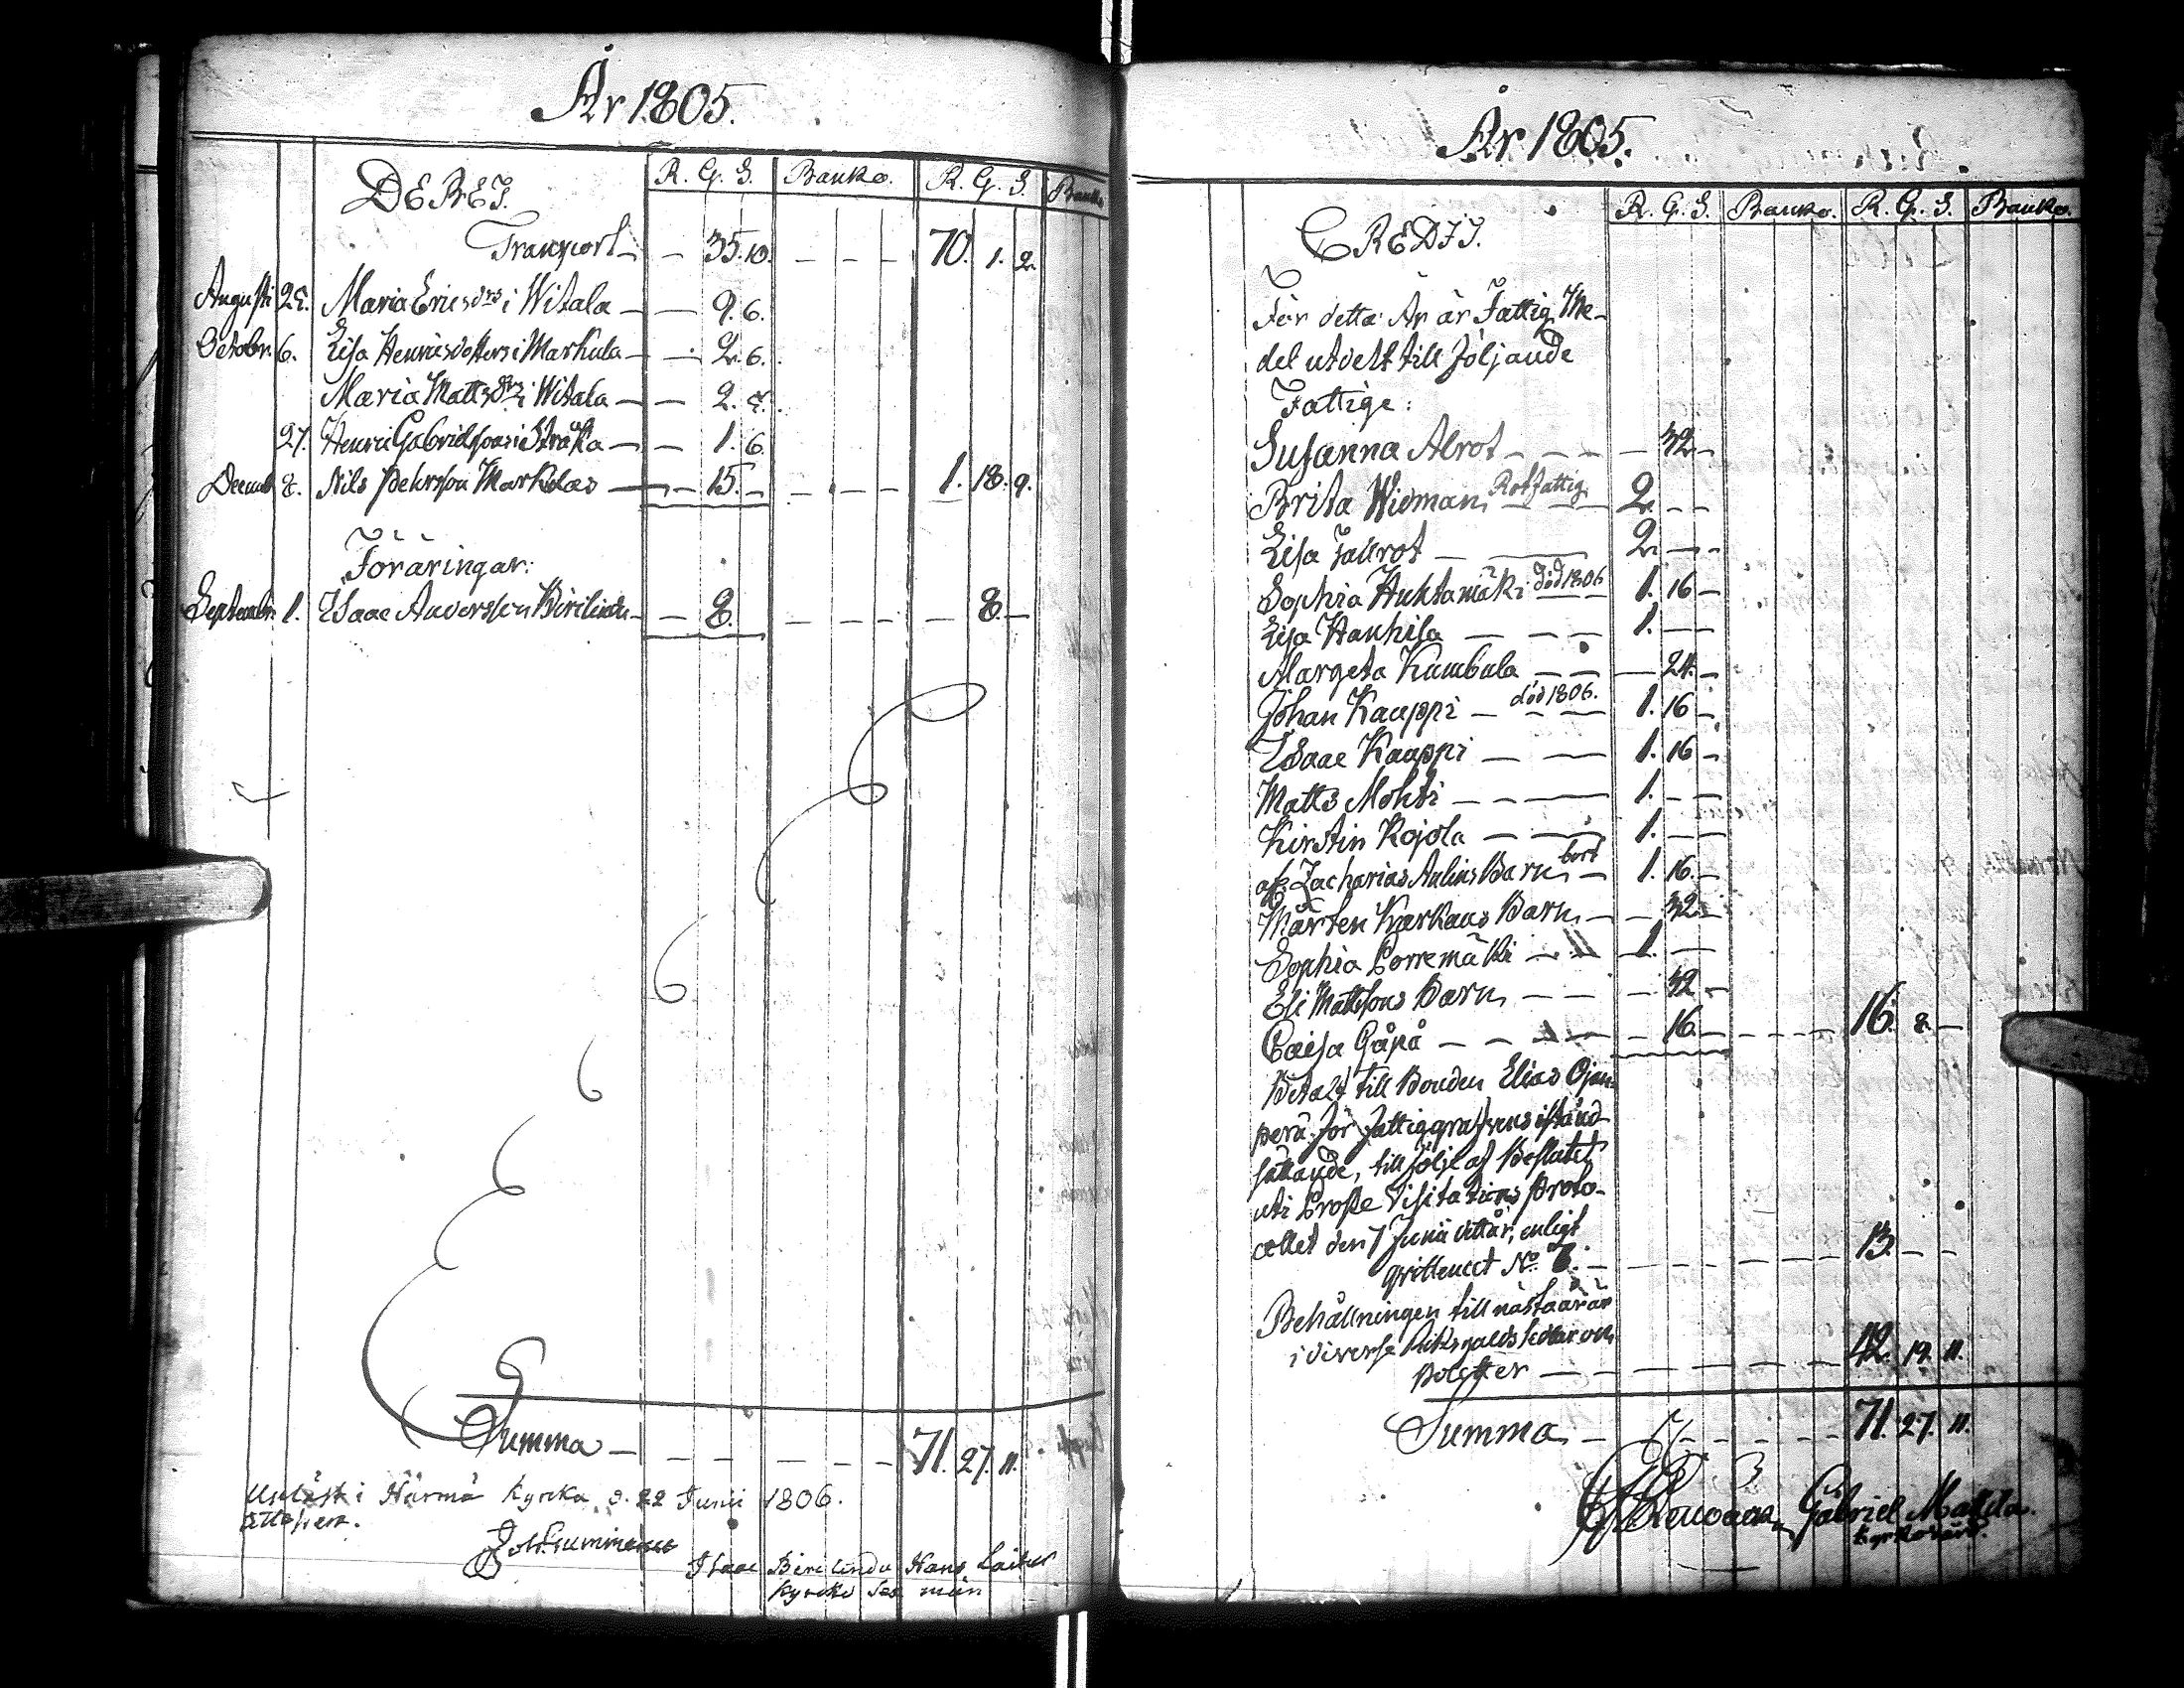 År 1805.
DEBET. R. G. S. Banko. R. G. S. Banko
Transport — — 35. 10. — — — 70. 1. 2.
Augusti 25. Maria Ericsdrs i Witala — — 9. 6.
Octobr. 6. Lisa Henricsdotters i Markula — — 2. 6.
Maria Mattsdrs i Witala — — 2. 5.
27. Henric Gabrielssons i Stråka — — 1. 6.
Decemb. 8. Nils Pehrsson Markulas — — 15. — — — — 1. 18. 9.
Föräringar:
Septembr. 1. Isaac Andersson Birilindu — — 8. — — — — 8. —
Summa — — — — — — — 71. 27. 11.
Upläst i Härmä Kyrka d. 22 Junii 1806.
attest.
Isaac Birilindu Hans
Kyrko Sex män
År 1805.
CREDIT. R. G. S. Banko. R. G. S. Banko.
För detta År är Fattig Me-
del utdelt till följande
Fattige:
Susanna Alrot — — — — 32 —
Brita Widman Rotfattig — — 2. — —
Lisa Jallrot — — 2. — —
Sophia Huhtamäki död 1806 — 1. 16 —
Lisa Hanhisa — — — 1. — —
Margeta Kumbula — — — 24. —
Johan Kauppi — död 1806. — — 1. 16 —
Isaac Kauppi — — 1. 16 —
Matts Mohti — — — 1. — —
Kirstin Rojola — — 1. — —
afl. Zacharias Aulins Barn bort — 1. 16. —
Mårten Karkaus Barn — — 32 —
Sophia Porremäki — — 1. —
Eli Mattssons Barn — — — 32 —
Caisa Gåpå — — — — 16. — — — — — 16. 8. —
Betalt till Bonden Elias Ojan-
perä för fattiggrafvens istånd-
sättande, till följe af Beslutet
uti Prosse Visitations Proto-
collet den 7 Junii dettaår, enligt
qvittencet No 3. — — — — — — — 13. — —
Behållningen till nästa år är
i diverse Riksgälds Sedlar och
Poletter — — — — — — — 42. 19. 11.
Summa — — — — — — — 71. 27. 11.
Gabriel Mattila.
Kyrkovärd.